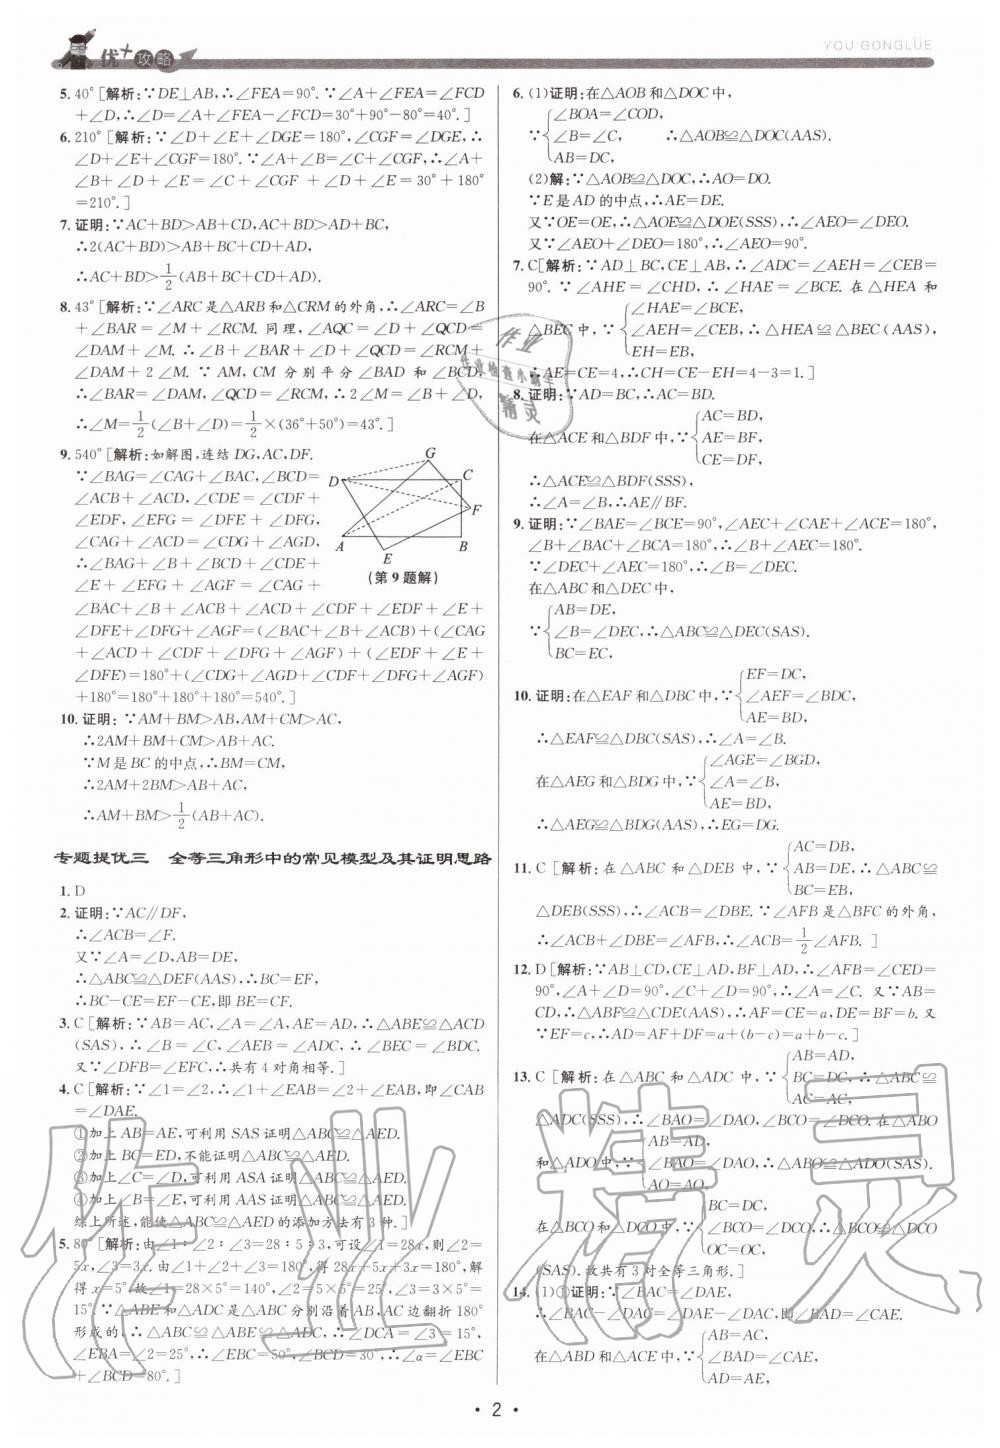 优+攻略
YOU+GONGLÜE
5. 40° [解析:∵DE⊥AB,∴∠FEA=90°.∵∠A+∠FEA=∠FCD
+∠D,∴∠D=∠A+∠FEA-∠FCD=30°+90°-80°=40°.]
6. 210° [解析:∵∠D+∠E+∠DGE=180°,∠CGF=∠DGE,∴
∠D+∠E+∠CGF=180°.∵∠A+∠B=∠C+∠CGF,∴∠A+
∠B+∠D+∠E=∠C+∠CGF+∠D+∠E=30°+180°
=210°.]
7. 证明:∵AC+BD>AB+CD,AC+BD>AD+BC,
∴2(AC+BD)>AB+BC+CD+AD,
∴AC+BD>1/2(AB+BC+CD+AD).
8. 43° [解析:∵∠ARC是△ARB和△CRM的外角,∴∠ARC=∠B
+∠BAR=∠M+∠RCM.同理,∠AQC=∠D+∠QCD=
∠DAM+∠M.∴∠B+∠BAR+∠D+∠QCD=∠RCM+
∠DAM+2∠M.∵AM,CM分别平分∠BAD和∠BCD,
∴∠BAR=∠DAM,∠QCD=∠RCM,∴2∠M=∠B+∠D,
∴∠M=1/2(∠B+∠D)=1/2×(36°+50°)=43°.]
9. 540° [解析:如解图,连结DG,AC,DF.
∵∠BAG=∠CAG+∠BAC,∠BCD=
∠ACB+∠ACD,∠CDE=∠CDF+
∠EDF,∠EFG=∠DFE+∠DFG,
∠CAG+∠ACD=∠CDG+∠AGD,
∴∠BAG+∠B+∠BCD+∠CDE+
∠E+∠EFG+∠AGF=∠CAG+
G
D
C
F
A
B
E
(第9题解)
∠BAC+∠B+∠ACB+∠ACD+∠CDF+∠EDF+∠E+
∠DFE+∠DFG+∠AGF=(∠BAC+∠B+∠ACB)+(∠CAG
+∠ACD+∠CDF+∠DFG+∠AGF)+(∠EDF+∠E+
∠DFE)=180°+(∠CDG+∠AGD+∠CDF+∠DFG+∠AGF)
+180°=180°+180°+180°=540°.]
10. 证明:∵AM+BM>AB,AM+CM>AC,
∴2AM+BM+CM>AB+AC.
∵M是BC的中点,∴BM=CM,
∴2AM+2BM>AB+AC,
∴AM+BM>1/2(AB+AC).
专题提优三 全等三角形中的常见模型及其证明思路
1. D
2. 证明:∵AC∥DF,
∴∠ACB=∠F.
又∵∠A=∠D,AB=DE,
∴△ABC≌△DEF(AAS),∴BC=EF,
∴BC-CE=EF-CE,即BE=CF.
3. C [解析:∵AB=AC,∠A=∠A,AE=AD,∴△ABE≌△ACD
(SAS),∴∠B=∠C,∠AEB=∠ADC,∴∠BEC=∠BDC.
又∵∠DFB=∠EFC,∴共有4对角相等.]
4. C [解析:∵∠1=∠2,∴∠1+∠EAB=∠2+∠EAB,即∠CAB
=∠DAE.
①加上AB=AE,可利用SAS证明△ABC≌△AED.
②加上BC=ED,不能证明△ABC≌△AED.
③加上∠C=∠D,可利用ASA证明△ABC≌△AED.
④加上∠B=∠E,可利用AAS证明△ABC≌△AED.
综上所述,能使△ABC≌△AED的添加方法有3种.]
5. 80° [解析:由∠1∶∠2∶∠3=28∶5∶3,可设∠1=28x,则∠2=
5x,∠3=3x.由∠1+∠2+∠3=180°,得28x+5x+3x=180°,解
得x=5°.故∠1=28×5°=140°,∠2=5×5°=25°,∠3=3×5°=
15°.∵△ABE和△ADC是△ABC分别沿着AB,AC边翻折180°
形成的,∴△ABC≌△ABE≌△ADC,∴∠DCA=∠3=15°,
∠EBA=∠2=25°,∴∠EBC=50°,∠BCD=30°,∴∠α=∠EBC
+∠BCD=80°.]
6. (1)证明:在△AOB和△DOC中,
∠BOA=∠COD,
∵ ∠B=∠C, ∴△AOB≌△DOC(AAS).
AB=DC,
(2)解:∵△AOB≌△DOC,∴AO=DO.
∵E是AD的中点,∴AE=DE.
又∵OE=OE,∴△AOE≌△DOE(SSS),∴∠AEO=∠DEO.
又∵∠AEO+∠DEO=180°,∴∠AEO=90°.
7. C[解析:∵AD⊥BC,CE⊥AB,∴∠ADC=∠AEH=∠CEB=
90°.∵∠AHE=∠CHD,∴∠HAE=∠BCE.在△HEA和
∠HAE=∠BCE,
△BEC中,∵ ∠AEH=∠CEB,∴△HEA≌△BEC(AAS),
EH=EB,
∴AE=CE=4,∴CH=CE-EH=4-3=1.]
8. 证明:∵AD=BC,∴AC=BD.
AC=BD,
在△ACE和△BDF中,∵ AE=BF,
CE=DF,
∴△ACE≌△BDF(SSS),
∴∠A=∠B,∴AE∥BF.
9. 证明:∵∠BAE=∠BCE=90°,∠AEC+∠CAE+∠ACE=180°,
∠B+∠BAC+∠BCA=180°,∴∠B+∠AEC=180°.
∵∠DEC+∠AEC=180°,∴∠B=∠DEC.
在△ABC和△DEC中,
AB=DE,
∵ ∠B=∠DEC,∴△ABC≌△DEC(SAS).
BC=EC,
EF=DC,
10. 证明:在△EAF和△DBC中,∵ ∠AEF=∠BDC,
AE=BD,
∴△EAF≌△DBC(SAS),∴∠A=∠B.
∠AGE=∠BGD,
在△AEG和△BDG中,∵ ∠A=∠B,
AE=BD,
∴△AEG≌△BDG(AAS),∴EG=DG.
AC=DB,
11. C [解析:在△ABC和△DEB中,∵ AB=DE,∴△ABC≌
BC=EB,
△DEB(SSS),∴∠ACB=∠DBE.∵∠AFB是△BFC的外角,
∴∠ACB+∠DBE=∠AFB,∴∠ACB=1/2∠AFB.]
12. D [解析:∵AB⊥CD,CE⊥AD,BF⊥AD,∴∠AFB=∠CED=
90°,∠A+∠D=90°,∠C+∠D=90°,∴∠A=∠C.又∵AB=
CD,∴△ABF≌△CDE(AAS),∴AF=CE=a,DE=BF=b.又
∵EF=c,∴AD=AF+DF=a+(b-c)=a+b-c.]
AB=AD,
13. C [解析:在△ABC和△ADC中,∵ BC=DC,∴△ABC≌
AC=AC,
△ADC(SSS),∴∠BAO=∠DAO,∠BCO=∠DCO.在△ABO
AB=AD,
和△ADO中,∵ ∠BAO=∠DAO,∴△ABO≌△ADO(SAS).
AO=AO,
BC=DC,
在△BCO和△DCO中,∵ ∠BCO=∠DCO,∴△BCO≌△DCO
OC=OC,
(SAS).故共有3对全等三角形.]
14. (1)①证明:∵∠BAC=∠DAE,
∴∠BAC-∠DAC=∠DAE-∠DAC,即∠BAD=∠CAE.
AB=AC,
在△ABD和△ACE中,∵ ∠BAD=∠CAE,
AD=AE,
作业
作业检查小帮手
精灵
作业精灵
· 2 ·